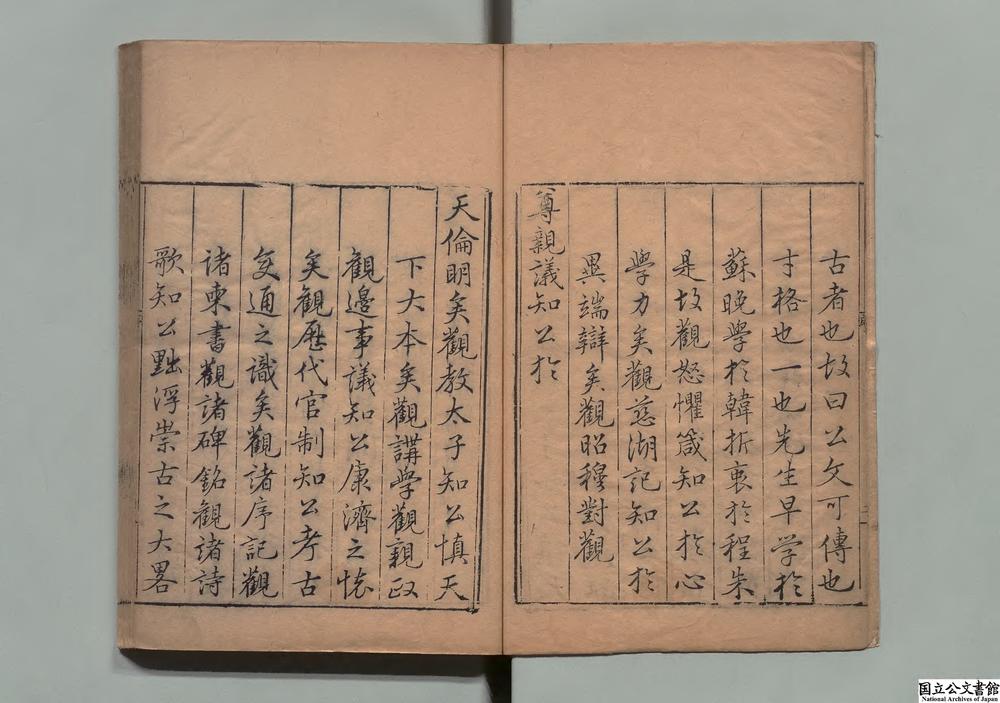 古者也故曰公文可傳也
才格也一也先生早学於
蘇晚学於韓折衷於程朱
是故觀怒懼箴知公於心
學力矣觀慈湖記知公於
異端辯矣觀昭穆對觀
尊親議知公於
天倫明矣觀教太子知公慎天
下大本矣觀講学觀親政
觀邊事議知公康濟之懷
矣觀歷代官制知公考古
变通之識矣觀諸序記觀
諸柬書觀諸碑銘觀諸詩
歌知公黜浮崇古之大畧
国立公文書館
National Archives of Japan